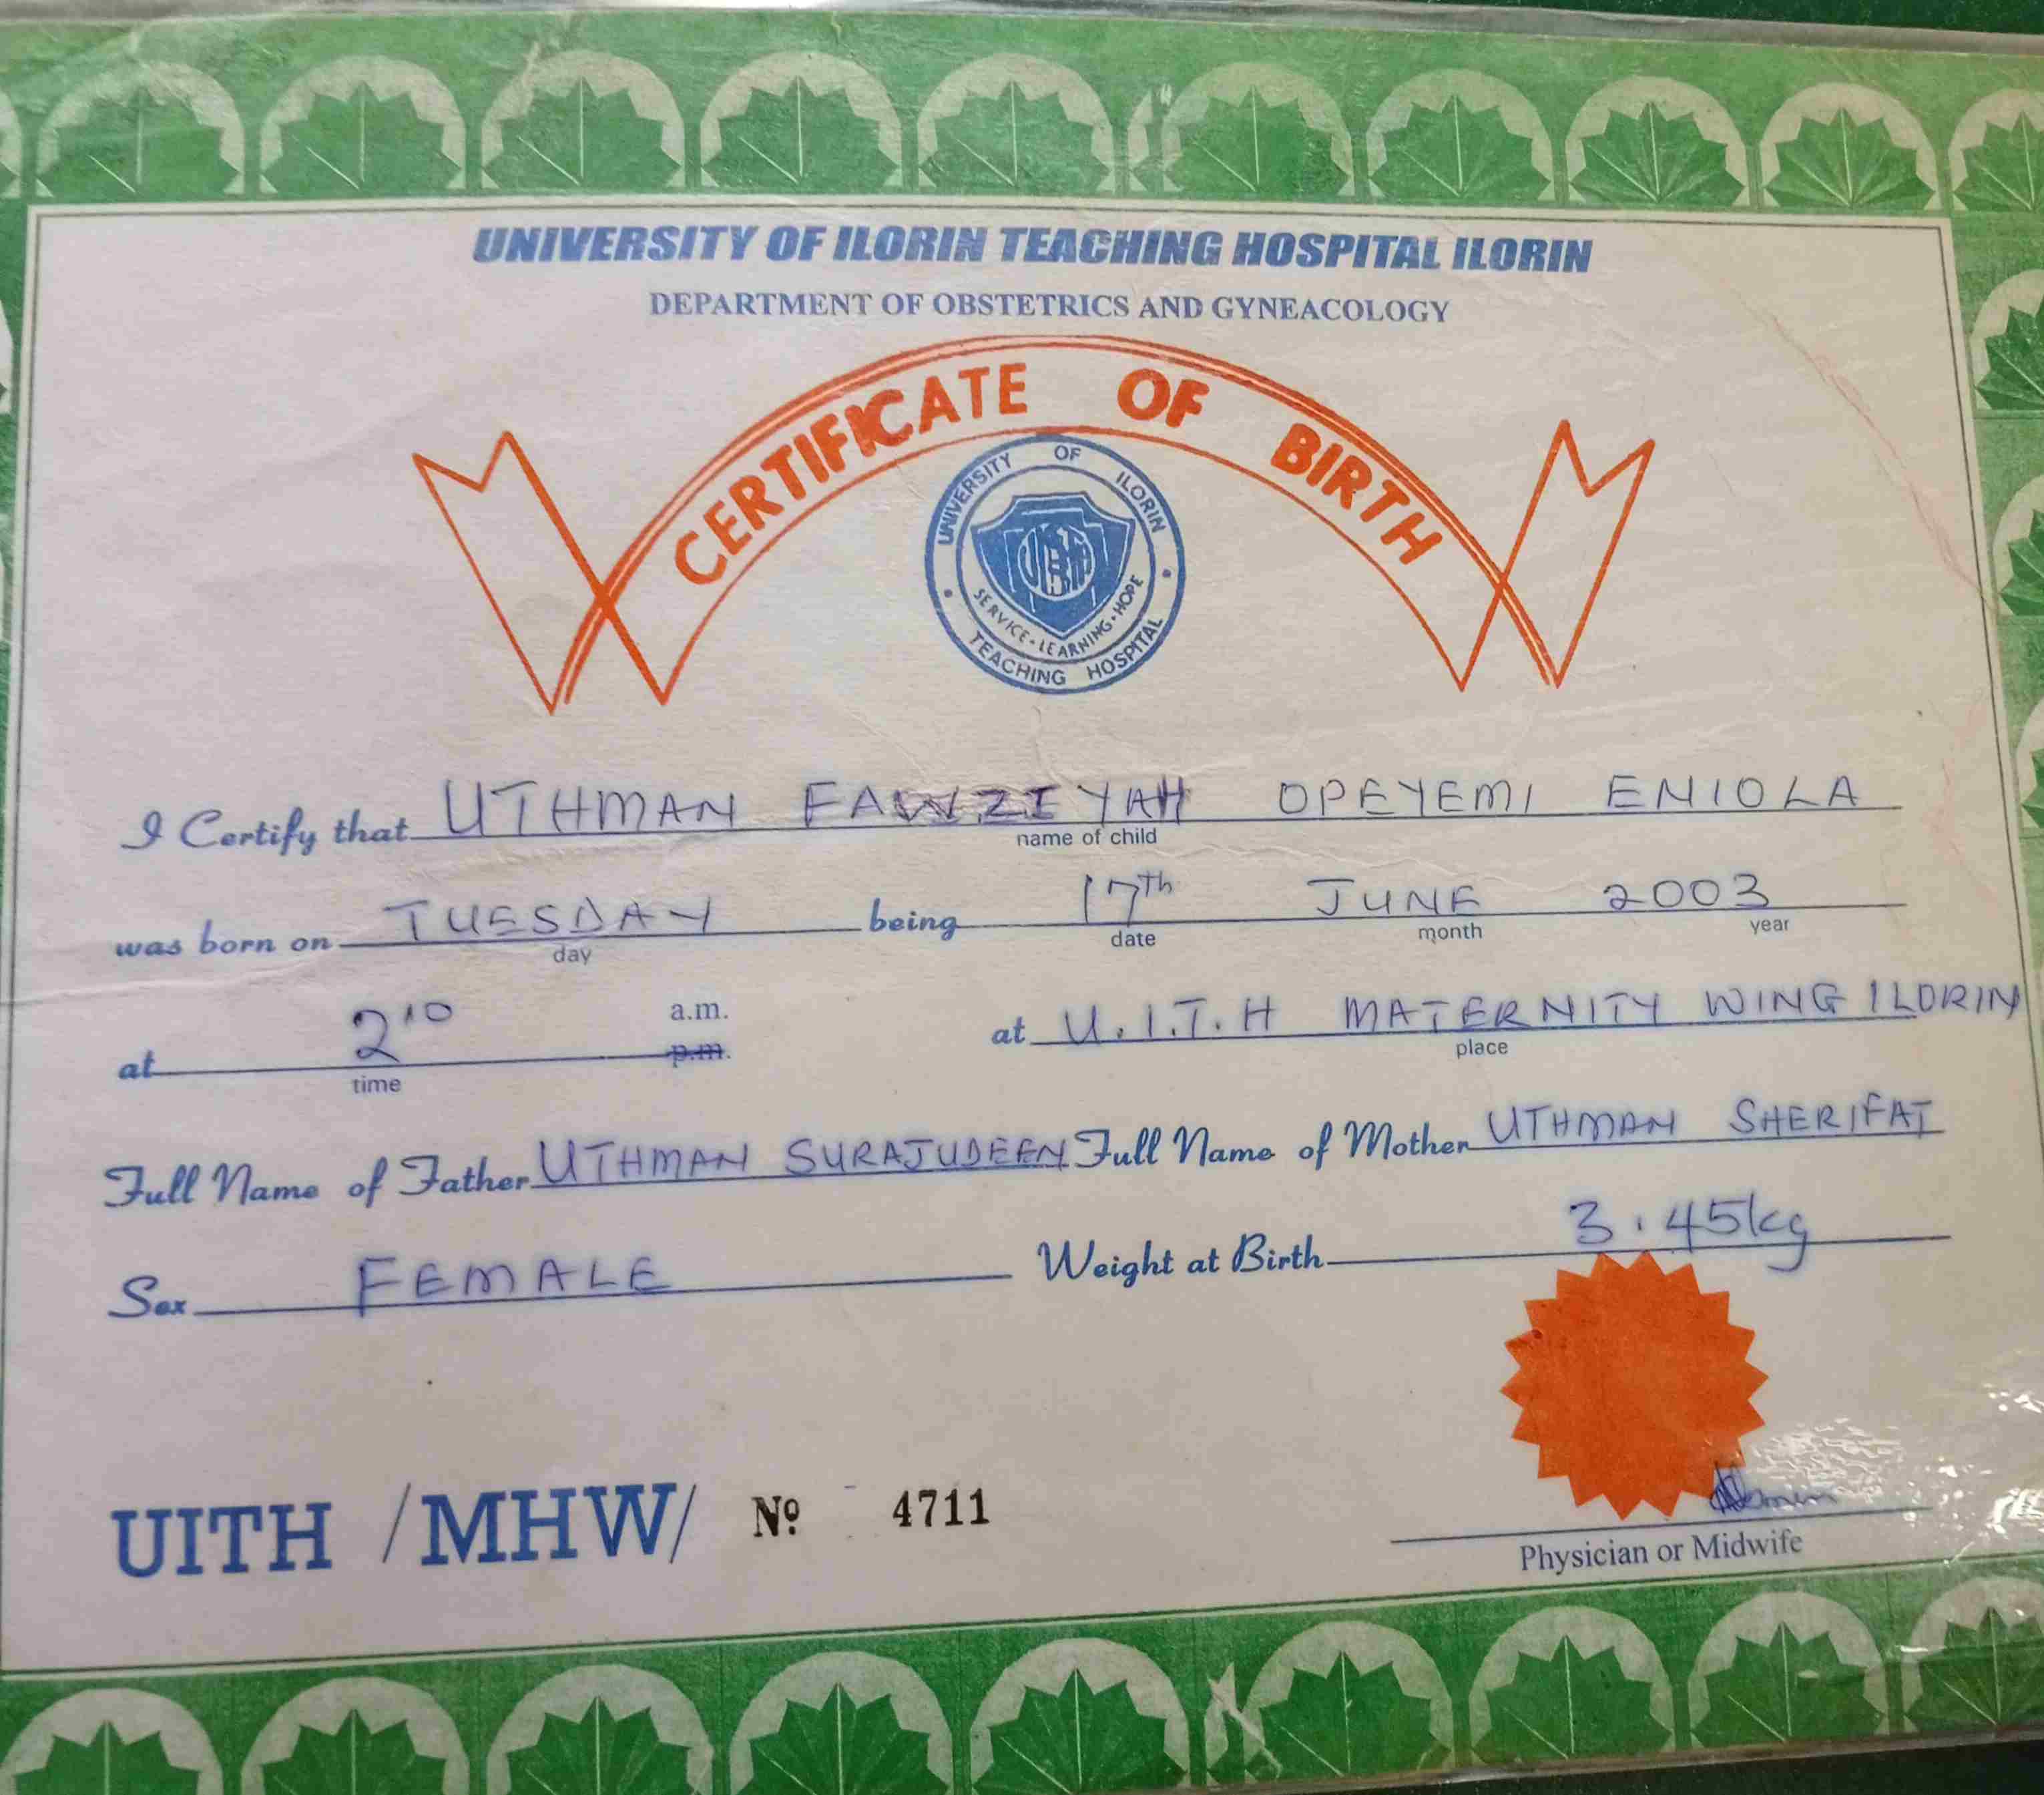 UNIVERSITY OF ILORIN TEACHING HOSPITAL ILORIN
DEPARTMENT OF OBSTETRICS AND GYNEACOLOGY
CERTIFICATE OF BIRTH
UNIVERSITY OF ILORIN
SERVICE • LEARNING • HOPE
TEACHING HOSPITAL
I Certify that UTHMAN FAWZIYAH OPEYEMI ENIOLA
name of child
was born on TUESDAY being 17th JUNE 2003
day date month year
at 2¹⁰ a.m. p.m. at U.I.T.H MATERNITY WING ILORIN
time place
Full Name of Father UTHMAN SURAJUDEEN Full Name of Mother UTHMAN SHERIFAT
Sex FEMALE Weight at Birth 3.45kg
UITH /MHW/ Nº 4711
Physician or Midwife